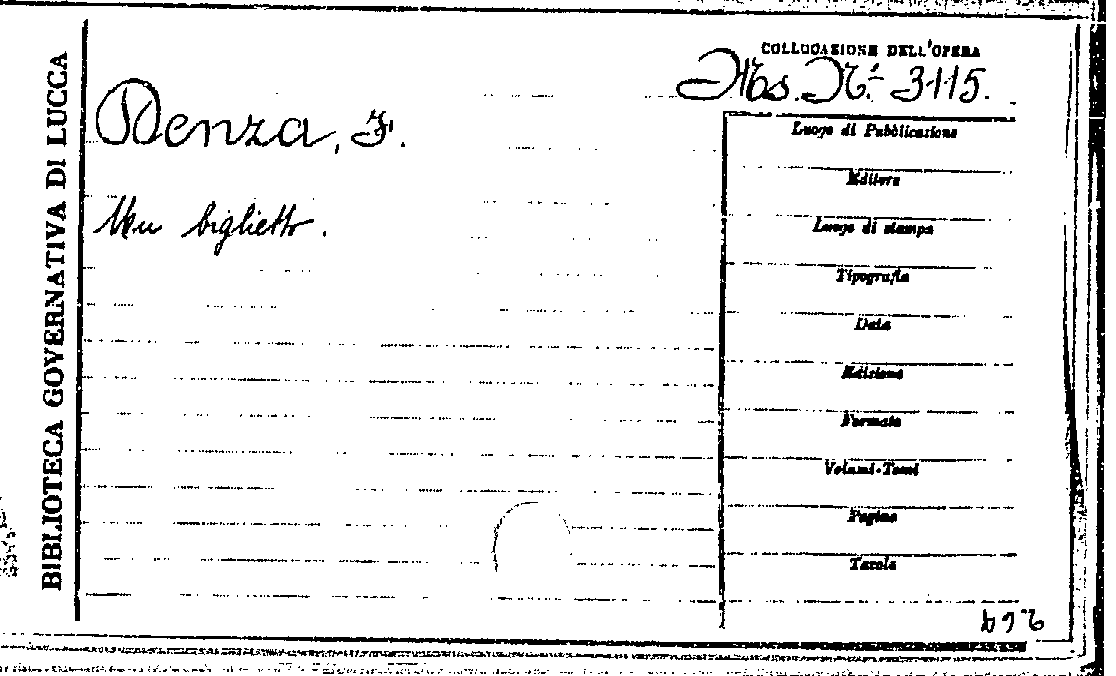 BIBLIOTECA GOVERNATIVA DI LUCCA
COLLOCAZIONE DELL'OPERA
Ms. N.º 3115.
Denza, F.
Un biglietto.
Luogo di Pubblicazione
Editore
Luogo di stampa
Tipografia
Data
Edizione
Formato
Volumi-Tomi
Pagine
Tavole